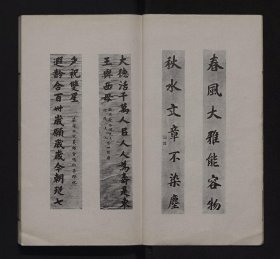 春風大雅能容物
秋水文章不染塵
大德活千萬人巨人人為壽是東
王與西母
夕祝雙星
遐齡合百卅歲願歲歲今朝現七